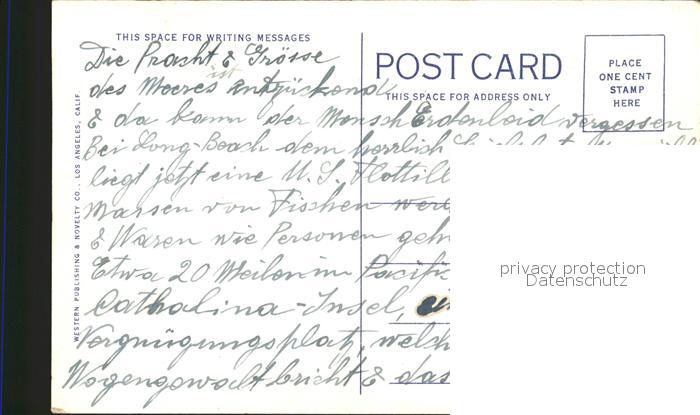 THIS SPACE FOR WRITING MESSAGES
POST CARD
THIS SPACE FOR ADDRESS ONLY
PLACE
ONE CENT
STAMP
HERE
WESTERN PUBLISHING & NOVELTY CO., LOS ANGELES, CALIF
Die Pracht & Grösse
ist
des Meeres entzückend
& da kann der Mensch Erdenleid vergessen
Bei Long-Beach dem herrlich
liegt jetzt eine U.S. Flottill
Massen von Fischen werd
& Waren wie Personen geh
Etwa 20 Meilen im Pacific
Cathalina-Insel,
Vergnügungsplatz, welch
Wogengewalt bricht & das
privacy protection
Datenschutz